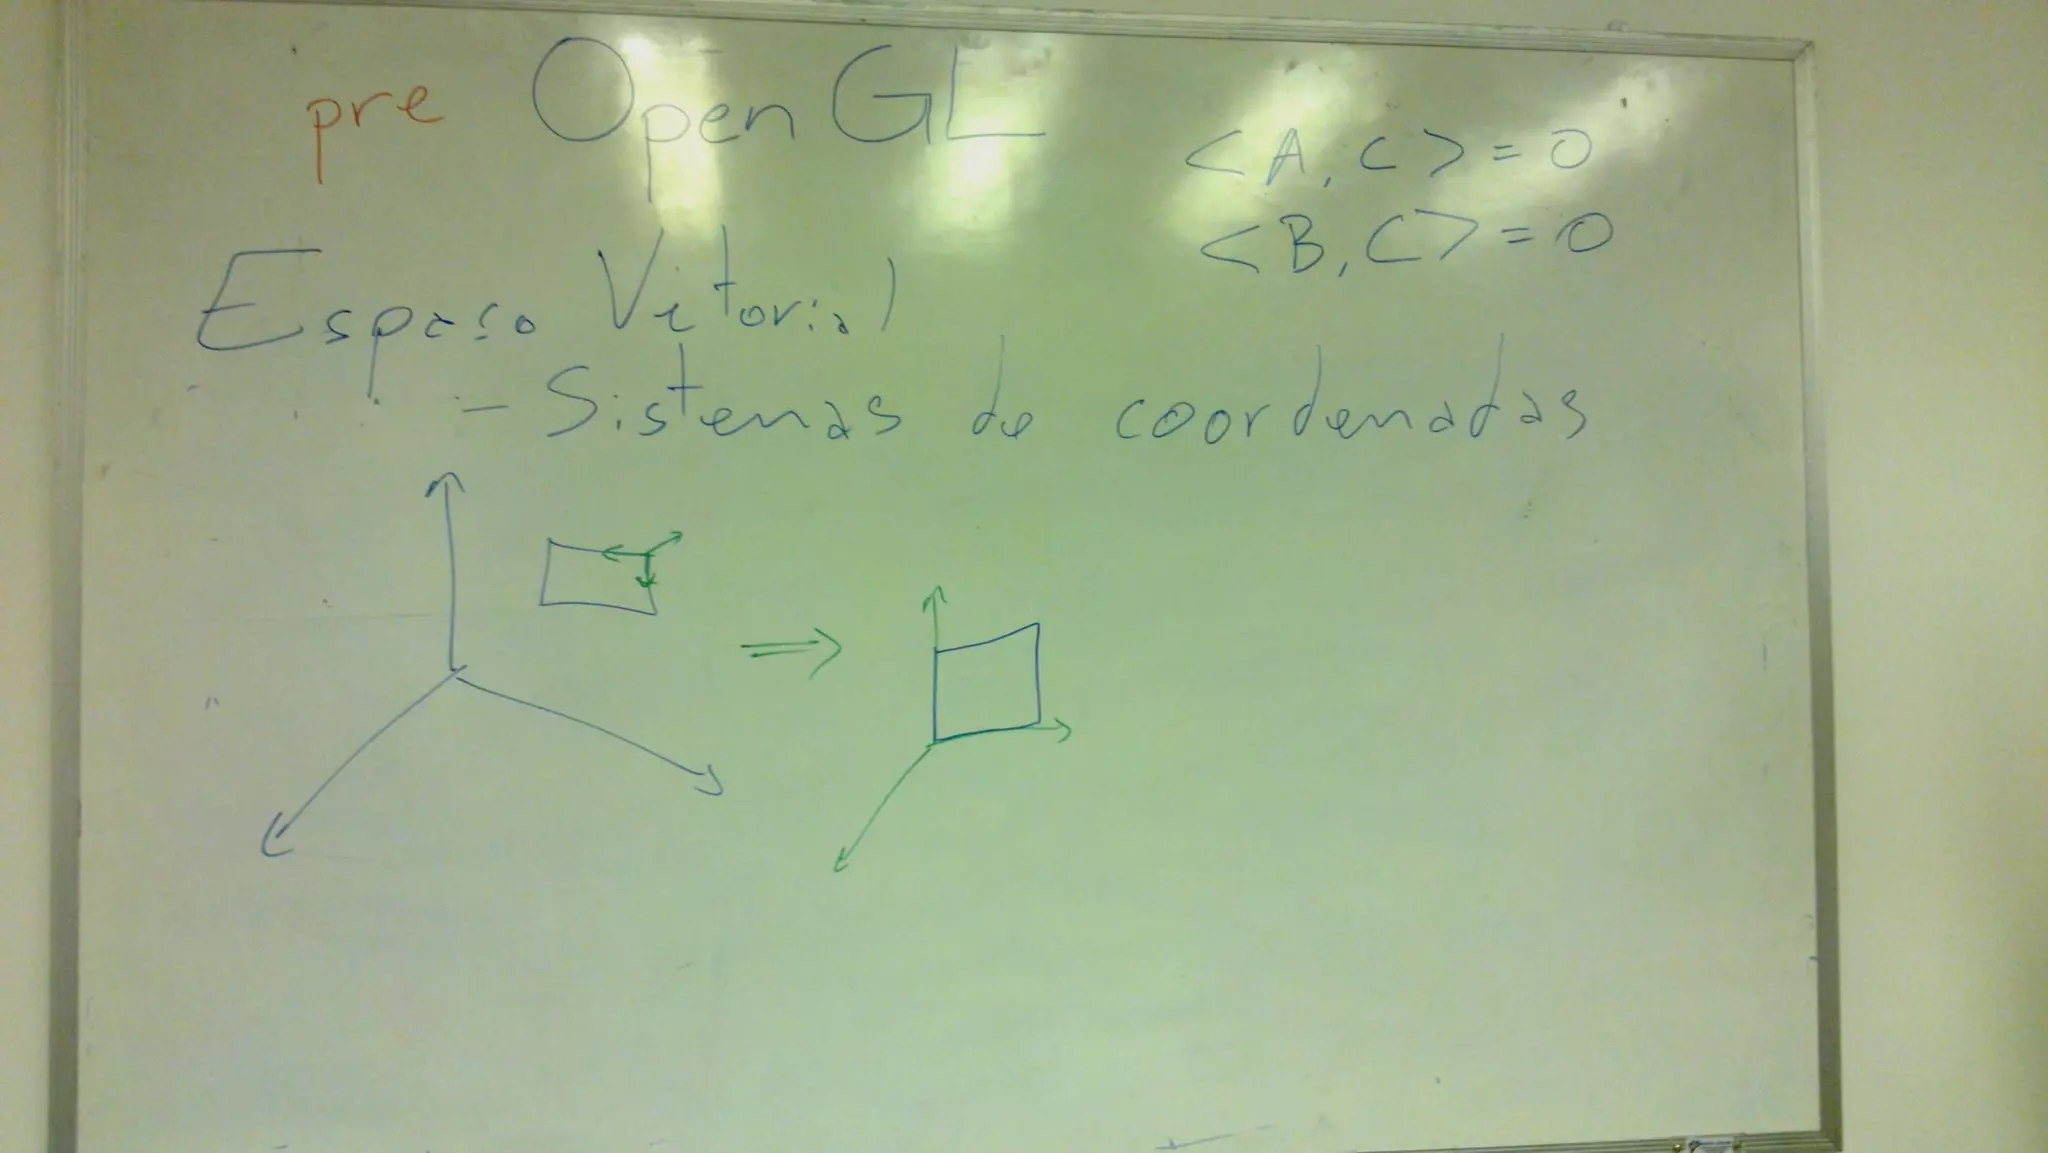 pre OpenGL
<A, C> = 0
<B, C> = 0
Espaço Vetorial
- Sistemas de coordenadas